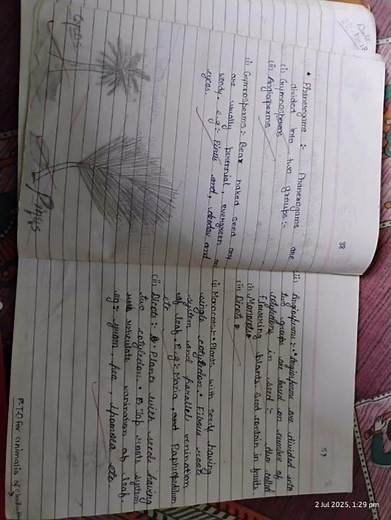 • Phanerogams :- Phanerogams are
divided into two groups:-
(i) Gymnosperms
(ii) Angiosperms
(i) Gymnosperms:- Bear naked seed any
are usually perennial, evergreen and
woody. e.g:- Pinus and, and
cycas.
Cycas
Pinus
38
(ii) Angiosperms:- Angiosperms are divided into
two groups on the basis on number of
cotyledons in seed :- also called
flowering plants. Seed contain in fruits
(i) Monocots
(ii) Dicot
(i) Monocots:- Plants with seeds having
single cotyledon. Fibrous roots
system and parallel venination
of leaf. e.g:- Maria, and Paphiopedilum
etc.
(ii) Dicots:- Plants with seeds having
two cotyledon. Tap roots system
and reticulate venination of leaf.
eg:- gram, pea, Ipomoea etc.
P.T.O for animalia
2 Jul 2025, 1:29 pm